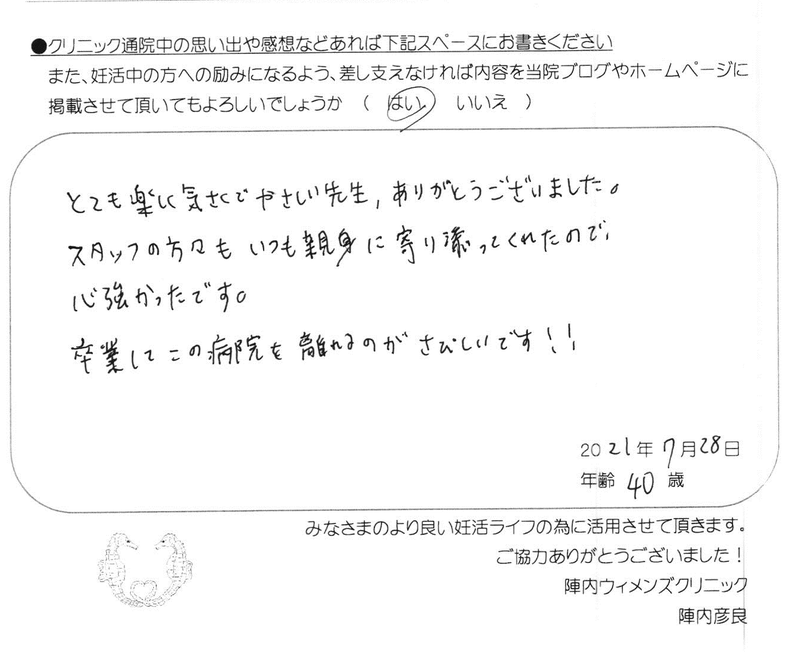 ●クリニック通院中の思い出や感想などあれば下記スペースにお書きください
また、妊活中の方への励みになるよう、差し支えなければ内容を当院ブログやホームページに
掲載させて頂いてもよろしいでしょうか （ はい ・ いいえ ）
とても楽しく気さくでやさしい先生，ありがとうございました。
スタッフの方々も いつも親身に寄り添ってくれたので，
心強かったです。
卒業して この病院を 離れるのが さびしいです！！
2021年 7月28日
年齢 40 歳
みなさまのより良い妊活ライフの為に活用させて頂きます。
ご協力ありがとうございました！
陣内ウィメンズクリニック
陣内彦良